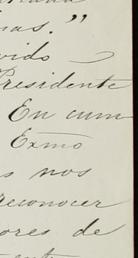 nas."
vido
Presidente
En cum
Exmo
s nos
reconocer
ores de